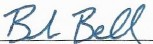 Bob Bell